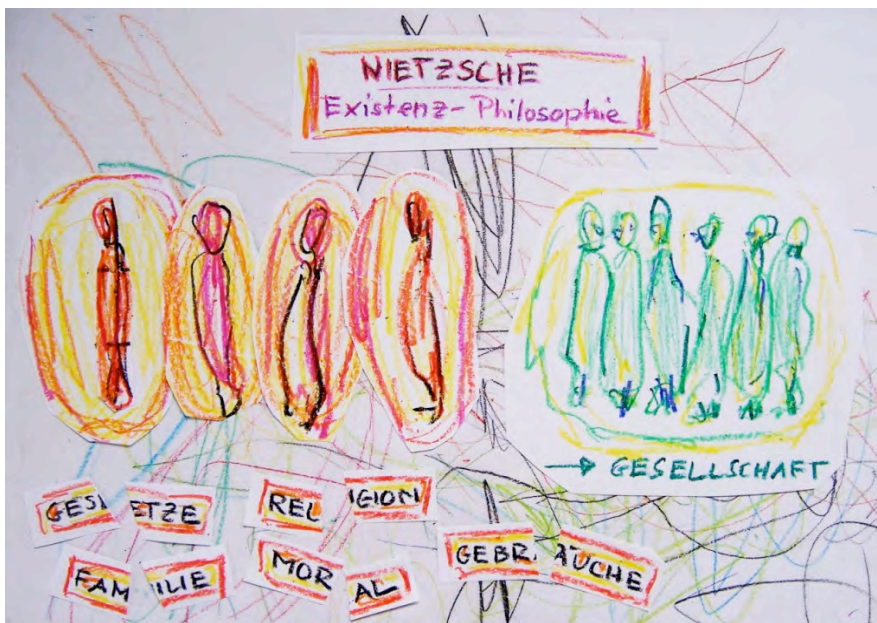 NIETZSCHE
Existenz-Philosophie
→ GESELLSCHAFT
GESE ETZE
REL IGION
FAM ILIE
MOR AL
GEBR ÄUCHE